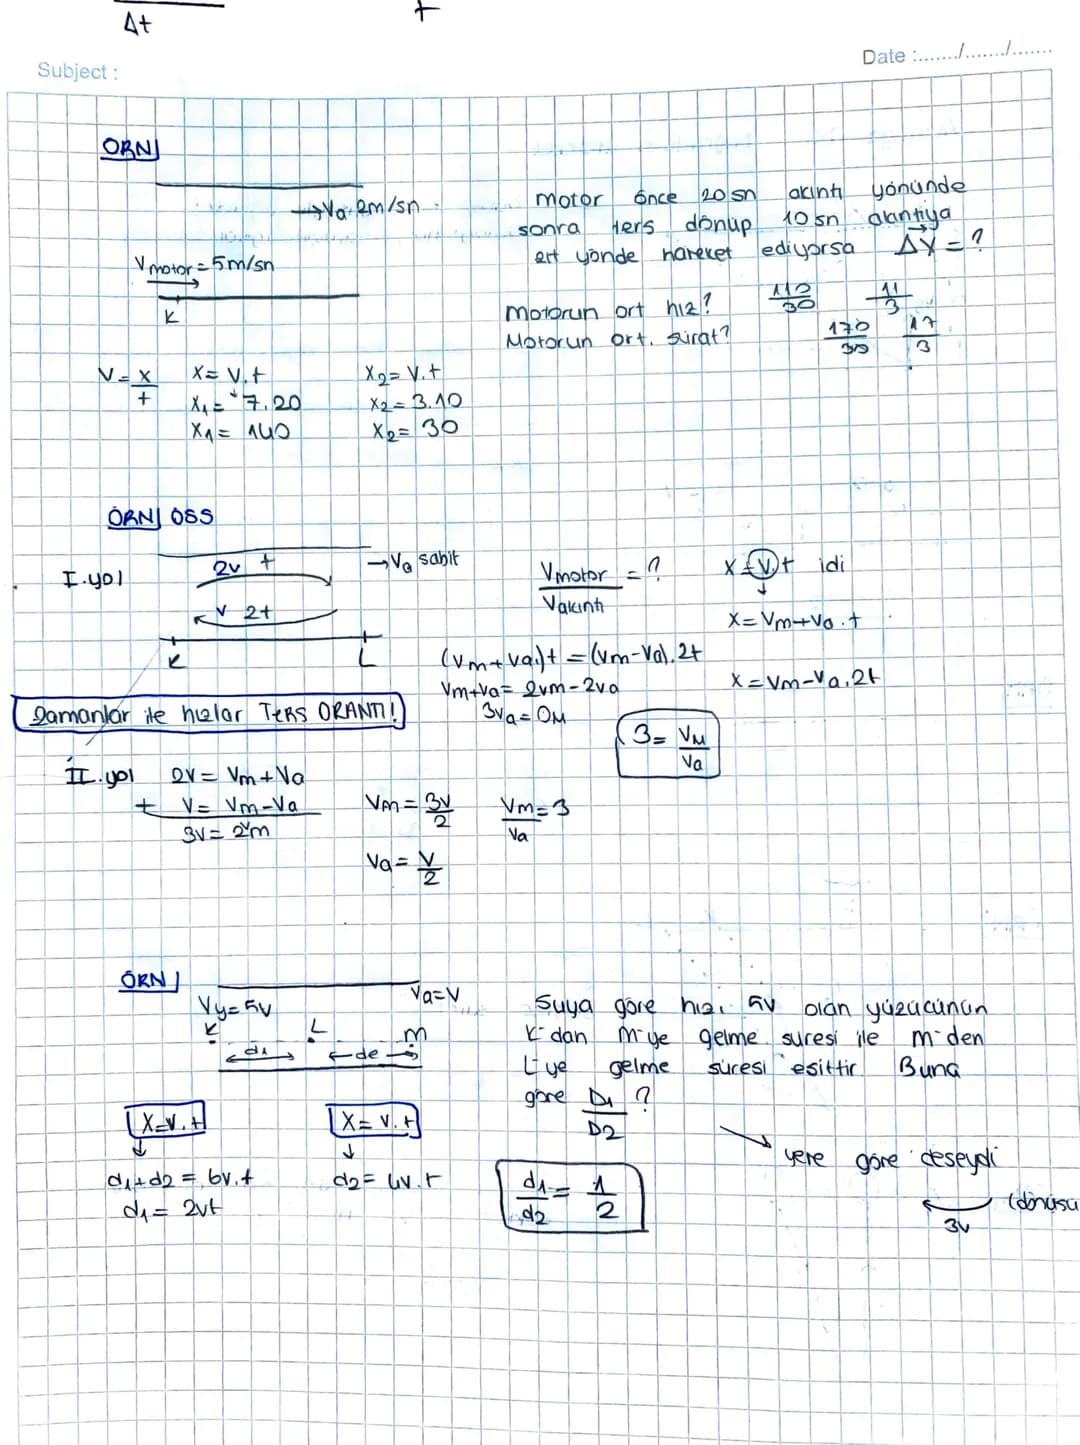 Δt
t
Subject :
Date :......./......./.......
ÖRN/
→Va 2m/sn
Vmotor = 5m/sn
K
motor önce 20 sn akıntı yönünde
sonra ters dönüp 10 sn akıntıya
zıt yönde hareket ediyorsa ΔX = ?
Motorun ort hız? 110/30 11/3
Motorun ort. sürat? 170/30 17/3
V = x/t
X = V.t
X1 = 7.20
X1 = 140
X2 = V.t
X2 = 3.10
X2 = 30
ÖRN/ OSS
I.yol
2v t
→Va sabit
v 2t
K L
Vmotor/Vakıntı = ?
X = V.t idi
X = Vm+Va.t
X = Vm-Va.2t
(Vm+Va)t = (Vm-Va).2t
Vm+Va = 2Vm-2Va
3Va = VM
3 = VM/Va
Zamanlar ile hızlar TERS ORANTI!
II.yol
2V = Vm+Va
+ V = Vm-Va
3V = 2Vm
Vm = 3V/2
Va = V/2
Vm/Va = 3
ÖRN/
Vy = 5V
Va=V
K L m
d1 d2
Suya göre hızı 5V olan yüzücünün
K'dan M'ye gelme suresi ile m'den
L'ye gelme süresi esittir Buna
göre D1/D2 ?
X=V.t
d1+d2 = 6v.t
d1 = 2vt
X = V.t
d2 = 4v.t
d1/d2 = 1/2
yere göre deseydi
(dönüşü
3v